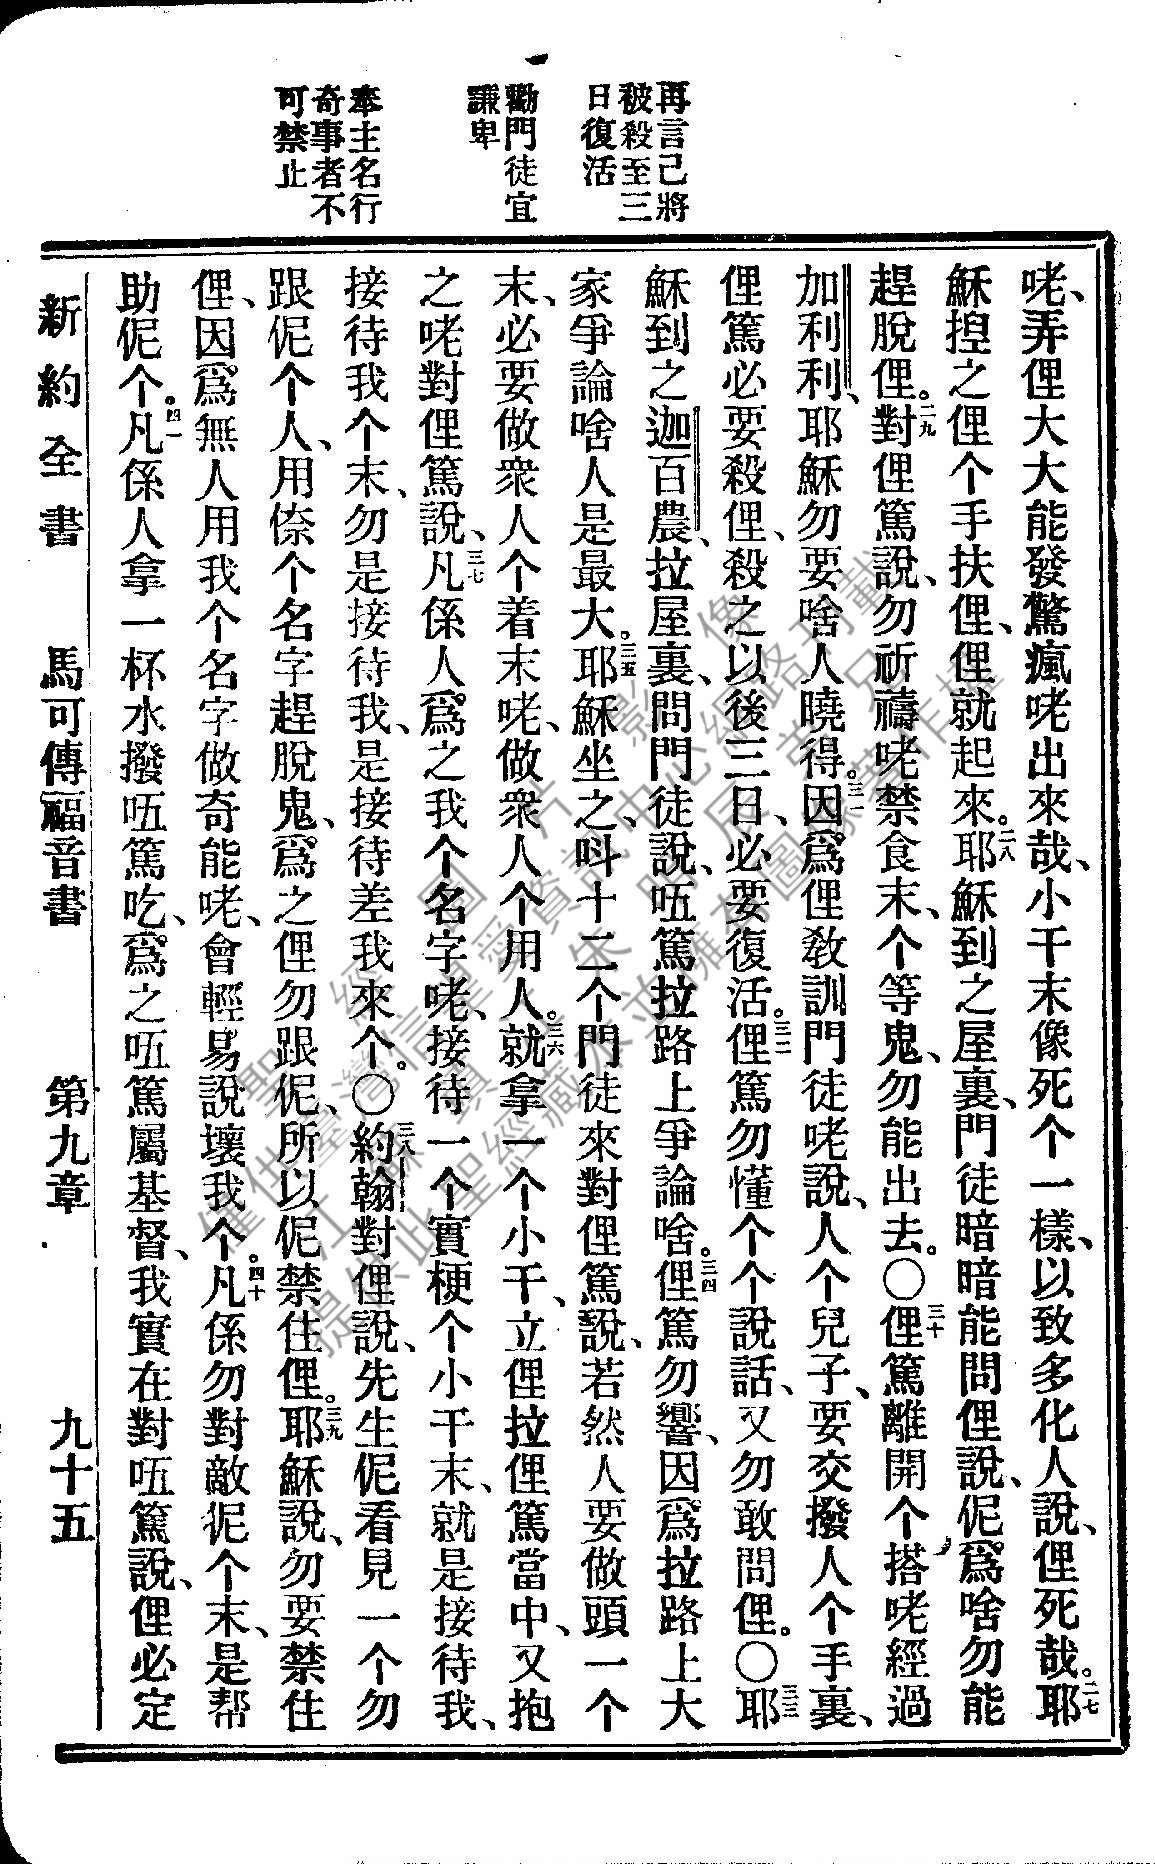 再言己將
被殺至三
日復活
勸門徒宜
謙卑
奉主名行
奇事者不
可禁止
咾、弄俚大大能發驚瘋咾出來哉、小干末像死个一樣、以致多化人說、俚死哉。二七耶
穌揑之俚个手扶俚、俚就起來。二八耶穌到之屋裏、門徒暗暗能問俚說、伲爲啥勿能
趕脫俚。二九對俚篤說、勿祈禱咾禁食末、个等鬼、勿能出去。〇三十俚篤離開个搭咾經過
加利利、耶穌勿要啥人曉得。三一因爲俚教訓門徒咾說、人个兒子、要交撥人个手裏、
俚篤必要殺俚、殺之以後三日、必要復活。三二俚篤勿懂个个說話、又勿敢問俚。〇三三耶
穌到之迦百農、拉屋裏、問門徒說、㕶篤拉路上爭論啥。三四俚篤勿響、因爲拉路上大
家爭論啥人是最大。三五耶穌坐之、呌十二个門徒來對俚篤說、若然人要做頭一个
末、必要做衆人个着末咾、做衆人个用人。三六就拿一个小干、立俚拉俚篤當中、又抱
之咾對俚篤說、三七凡係人爲之我个名字咾、接待一个實梗个小干末、就是接待我、
接待我个末、勿是接待我、是接待差我來个。〇三八約翰對俚說、先生伲看見一个勿
跟伲个人、用倷个名字趕脫鬼、爲之俚勿跟伲、所以伲禁住俚。三九耶穌說、勿要禁住
俚、因爲無人用我个名字做奇能咾、會輕易說壞我个。四十凡係勿對敵伲个末、是帮
助伲个。四一凡係人拿一杯水撥㕶篤吃、爲之㕶篤屬基督、我實在對㕶篤說、俚必定
新約全書 馬可傳福音書 第九章 九十五
聖經圖片影像
僅供臺灣信望愛資訊中心網路刊載
提供此聖經藏本並擁有圖像著作權